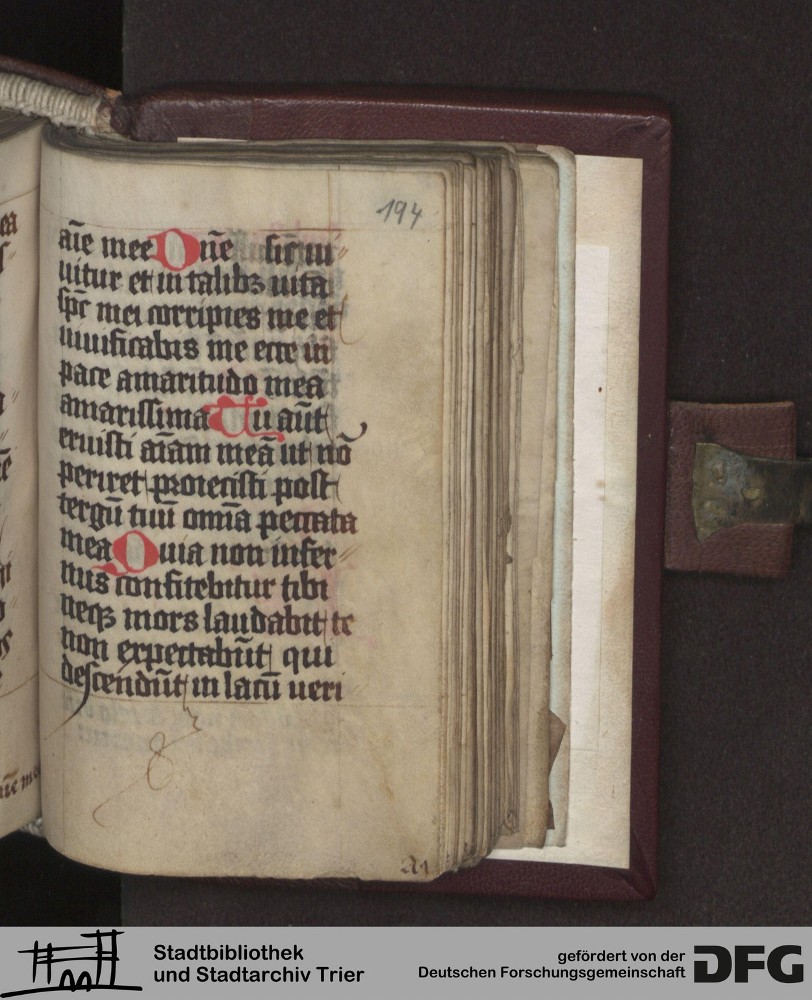 194
aīe mee Dn̄e si sic vi
uitur et in talibꝫ uita
sp̄c mei corripies me et
uiuificabis me ecce in
pace amaritudo mea
amarissima Tu aūt
eruisti aīam meā ut nō
periret proiecisti post
tergū tuū om̄ia peccata
mea Quia non infer
nus confitebitur tibi
neqꝫ mors laudabit te
non expectabūt qui
descendūt in lacū ueri
Stadtbibliothek
und Stadtarchiv Trier
gefördert von der
Deutschen Forschungsgemeinschaft
DFG